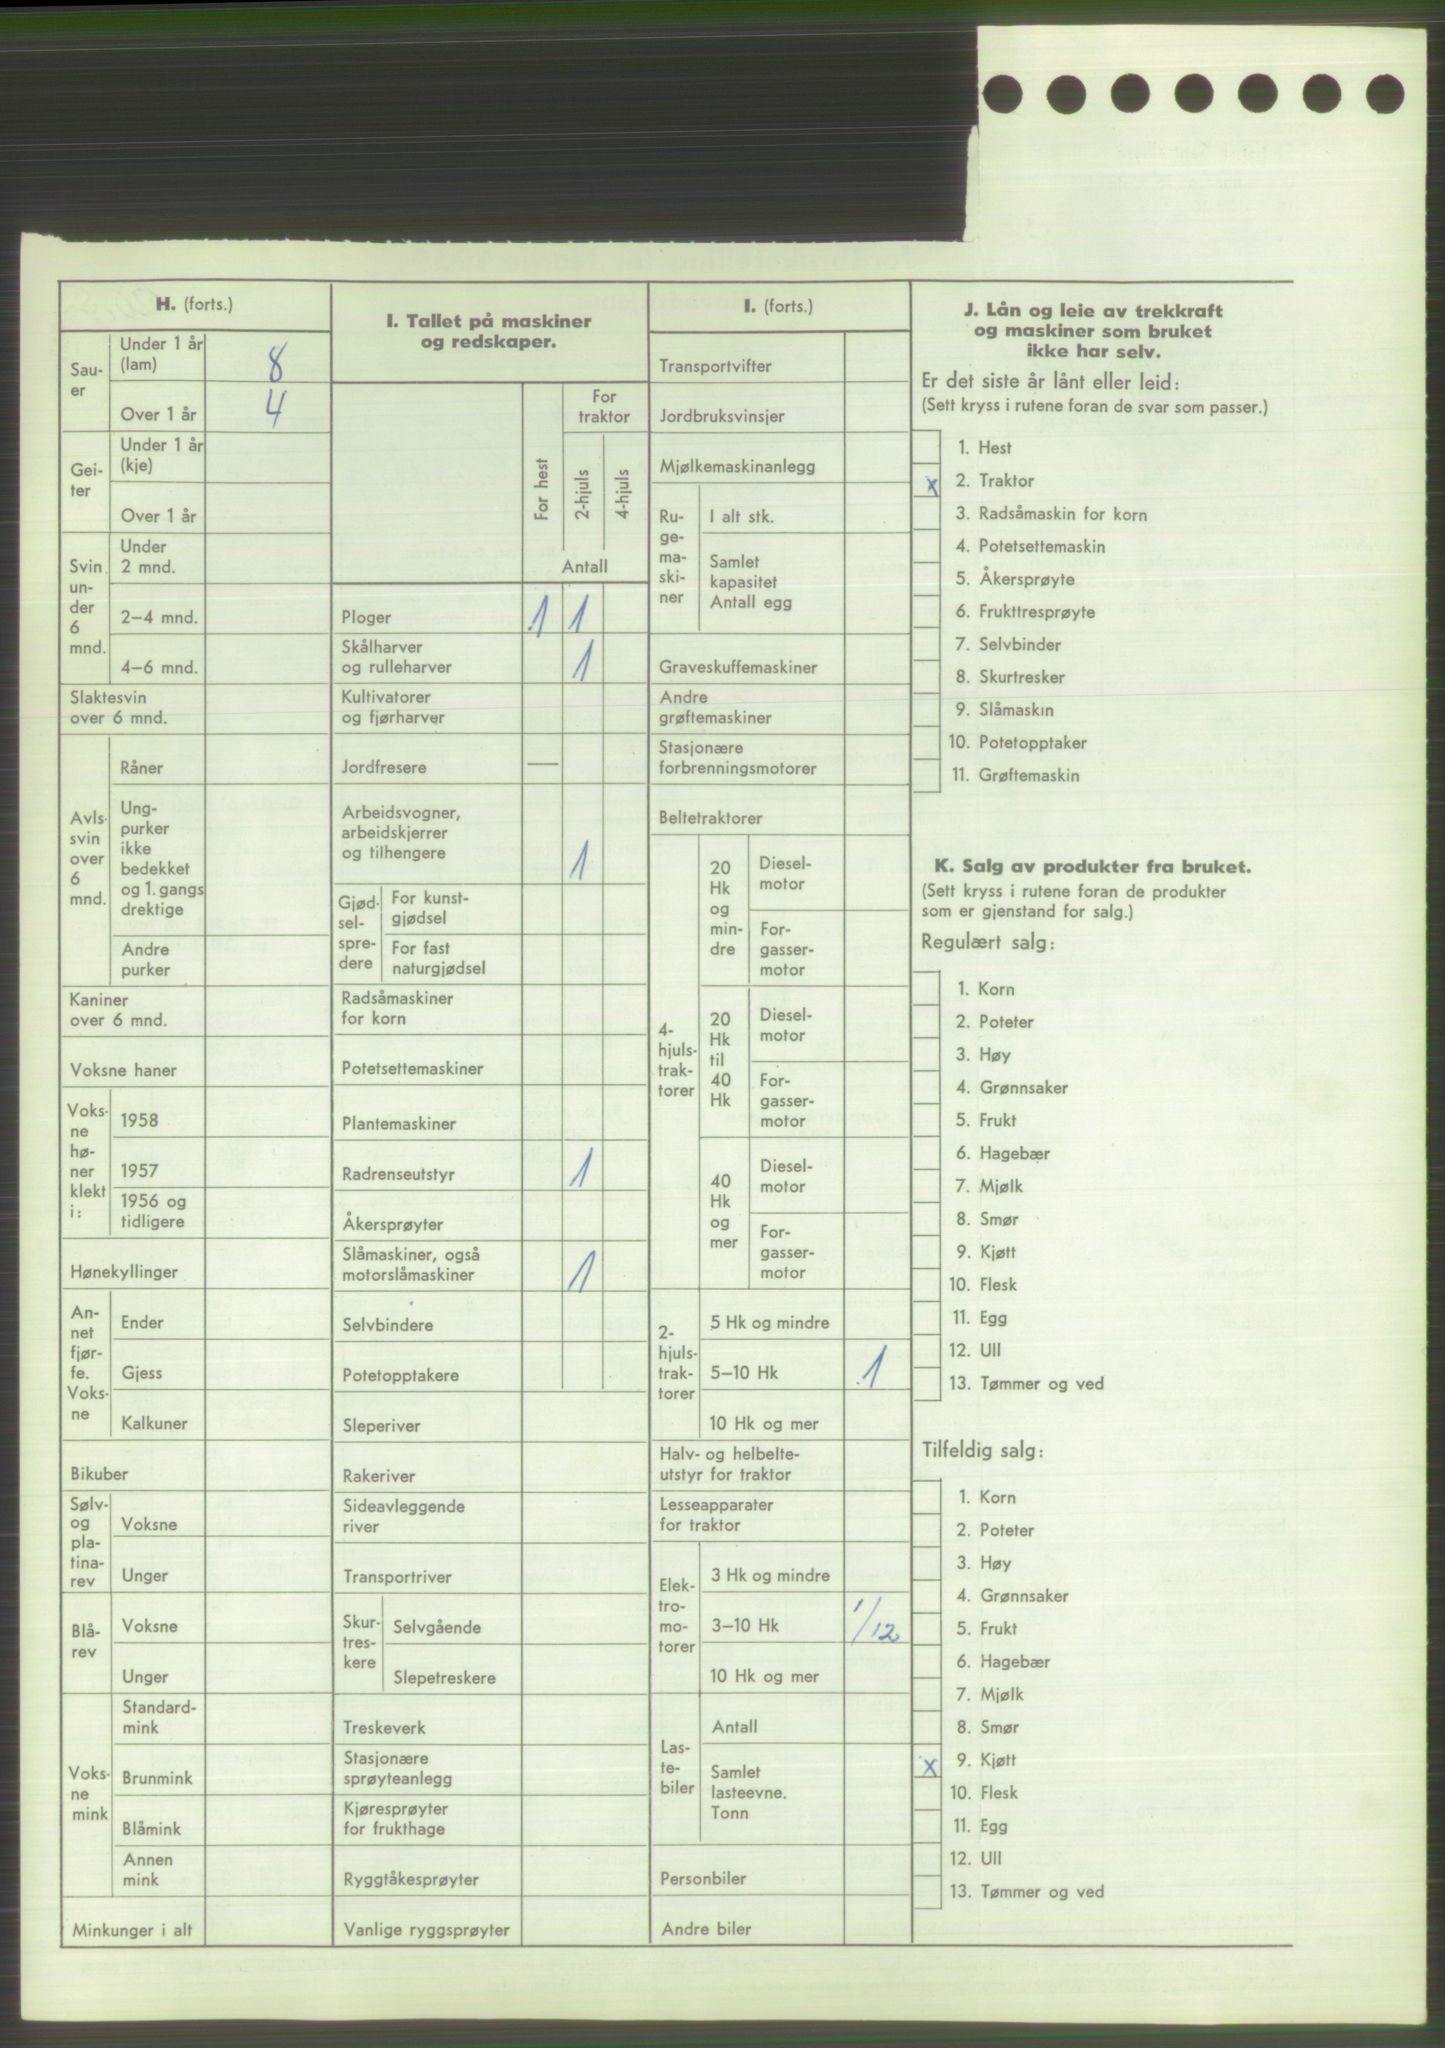 H. (forts.)
Sau-
er
Under 1 år
(lam)
8
Over 1 år
4
Gei-
ter
Under 1 år
(kje)
Over 1 år
Svin
un-
der
6
mnd.
Under
2 mnd.
2–4 mnd.
4–6 mnd.
Slaktesvin
over 6 mnd.
Avls-
svin
over
6
mnd.
Råner
Ung-
purker
ikke
bedekket
og 1. gangs
drektige
Andre
purker
Kaniner
over 6 mnd.
Voksne haner
Voks-
ne
hø-
ner
klekt
i:
1958
1957
1956 og
tidligere
Hønekyllinger
An-
net
fjør-
fe.
Voks-
ne
Ender
Gjess
Kalkuner
Bikuber
Sølv-
og
pla-
tina-
rev
Voksne
Unger
Blå-
rev
Voksne
Unger
Voks-
ne
mink
Standard-
mink
Brunmink
Blåmink
Annen
mink
Minkunger i alt
I. Tallet på maskiner
og redskaper.
For hest
For
traktor
2-hjuls
4-hjuls
Antall
Ploger 1 1
Skålharver
og rulleharver 1
Kultivatorer
og fjørharver
Jordfresere —
Arbeidsvogner,
arbeidskjerrer
og tilhengere 1
Gjød-
sel-
spre-
dere
For kunst-
gjødsel
For fast
naturgjødsel
Radsåmaskiner
for korn
Potetsettemaskiner
Plantemaskiner
Radrenseutstyr 1
Åkersprøyter
Slåmaskiner, også
motorslåmaskiner 1
Selvbindere
Potetopptakere
Sleperiver
Rakeriver
Sideavleggende
river
Transportriver
Skur-
tres-
kere
Selvgående
Slepetreskere
Treskeverk
Stasjonære
sprøyteanlegg
Kjøresprøyter
for frukthage
Ryggtåkesprøyter
Vanlige ryggsprøyter
I. (forts.)
Transportvifter
Jordbruksvinsjer
Mjølkemaskinanlegg
Ru-
ge-
ma-
ski-
ner
I alt stk.
Samlet
kapasitet
Antall egg
Graveskuffemaskiner
Andre
grøftemaskiner
Stasjonære
forbrenningsmotorer
Beltetraktorer
4-
hjuls-
trak-
torer
20
Hk
og
min-
dre
Diesel-
motor
For-
gasser-
motor
20
Hk
til
40
Hk
Diesel-
motor
For-
gasser-
motor
40
Hk
og
mer
Diesel-
motor
For-
gasser-
motor
2-
hjuls-
trak-
torer
5 Hk og mindre
5–10 Hk 1
10 Hk og mer
Halv- og helbelte-
utstyr for traktor
Lesseapparater
for traktor
Elek-
tro-
mo-
torer
3 Hk og mindre
3–10 Hk 1/12
10 Hk og mer
Las-
te-
biler
Antall
Samlet
lasteevne.
Tonn
Personbiler
Andre biler
J. Lån og leie av trekkraft
og maskiner som bruket
ikke har selv.
Er det siste år lånt eller leid:
(Sett kryss i rutene foran de svar som passer.)
1. Hest
x 2. Traktor
3. Radsåmaskin for korn
4. Potetsettemaskin
5. Åkersprøyte
6. Frukttresprøyte
7. Selvbinder
8. Skurtresker
9. Slåmaskin
10. Potetopptaker
11. Grøftemaskin
K. Salg av produkter fra bruket.
(Sett kryss i rutene foran de produkter
som er gjenstand for salg.)
Regulært salg:
1. Korn
2. Poteter
3. Høy
4. Grønnsaker
5. Frukt
6. Hagebær
7. Mjølk
8. Smør
9. Kjøtt
10. Flesk
11. Egg
12. Ull
13. Tømmer og ved
Tilfeldig salg:
1. Korn
2. Poteter
3. Høy
4. Grønnsaker
5. Frukt
6. Hagebær
7. Mjølk
8. Smør
x 9. Kjøtt
10. Flesk
11. Egg
12. Ull
13. Tømmer og ved